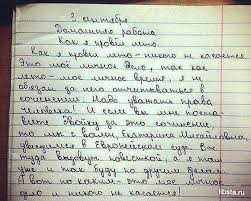 3 сентября
Домашняя работа
Как я провёл лето.
Как я провёл лето - никого не касается.
Это моё личное дело, так как
лето - моё личное время, я не
обязан за него отчитываться в
сочинении. Надо уважать права
человека. И если вы мне поста-
вите двойку за это сочинение,
то мы с вами, Екатерина Михайловна,
увидимся в Европейском суде. Вас
туда вызовут повесткой, а я там
уже и так буду по другим делам.
А вот по каким - это моё личное
дело и никого не касается!